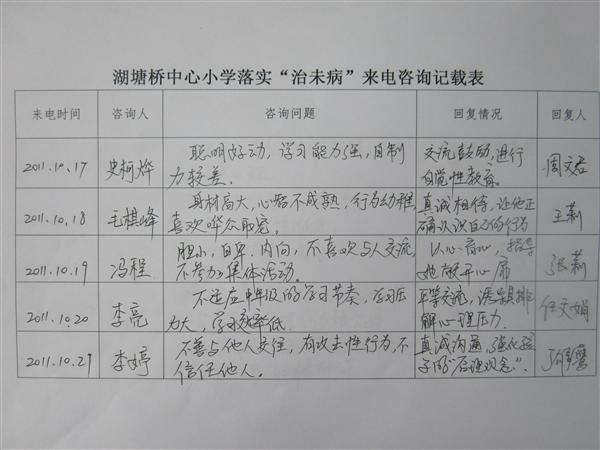 湖塘桥中心小学落实“治未病”来电咨询记载表
来电时间 咨询人 咨询问题 回复情况 回复人
2011.10.17 史柯烨 聪明好动，学习能力强，自制 交流鼓励，进行 周文君
力较差。 自觉性教育。
2011.10.18 毛棋峰 身材高大，心智不成熟，行为幼稚， 真诚相待，让他正 王莉
喜欢哗众取宠。 确认识自己的行为
2011.10.19 冯程 胆小，自卑．内向，不喜欢与人交流， 以心育心，指导 张莉
不参加集体活动。 她敞开心扉
2011.10.20 李亮 不适应中年级的学习节奏，学习压 平等交流，误导其排 任文娟
力大，学习效率低． 解心理压力．
2011.10.27 李婷 不善与他人交往，有攻击性行为，不 真诚沟通，强化孩
信任他人。 子的“后理观念”．